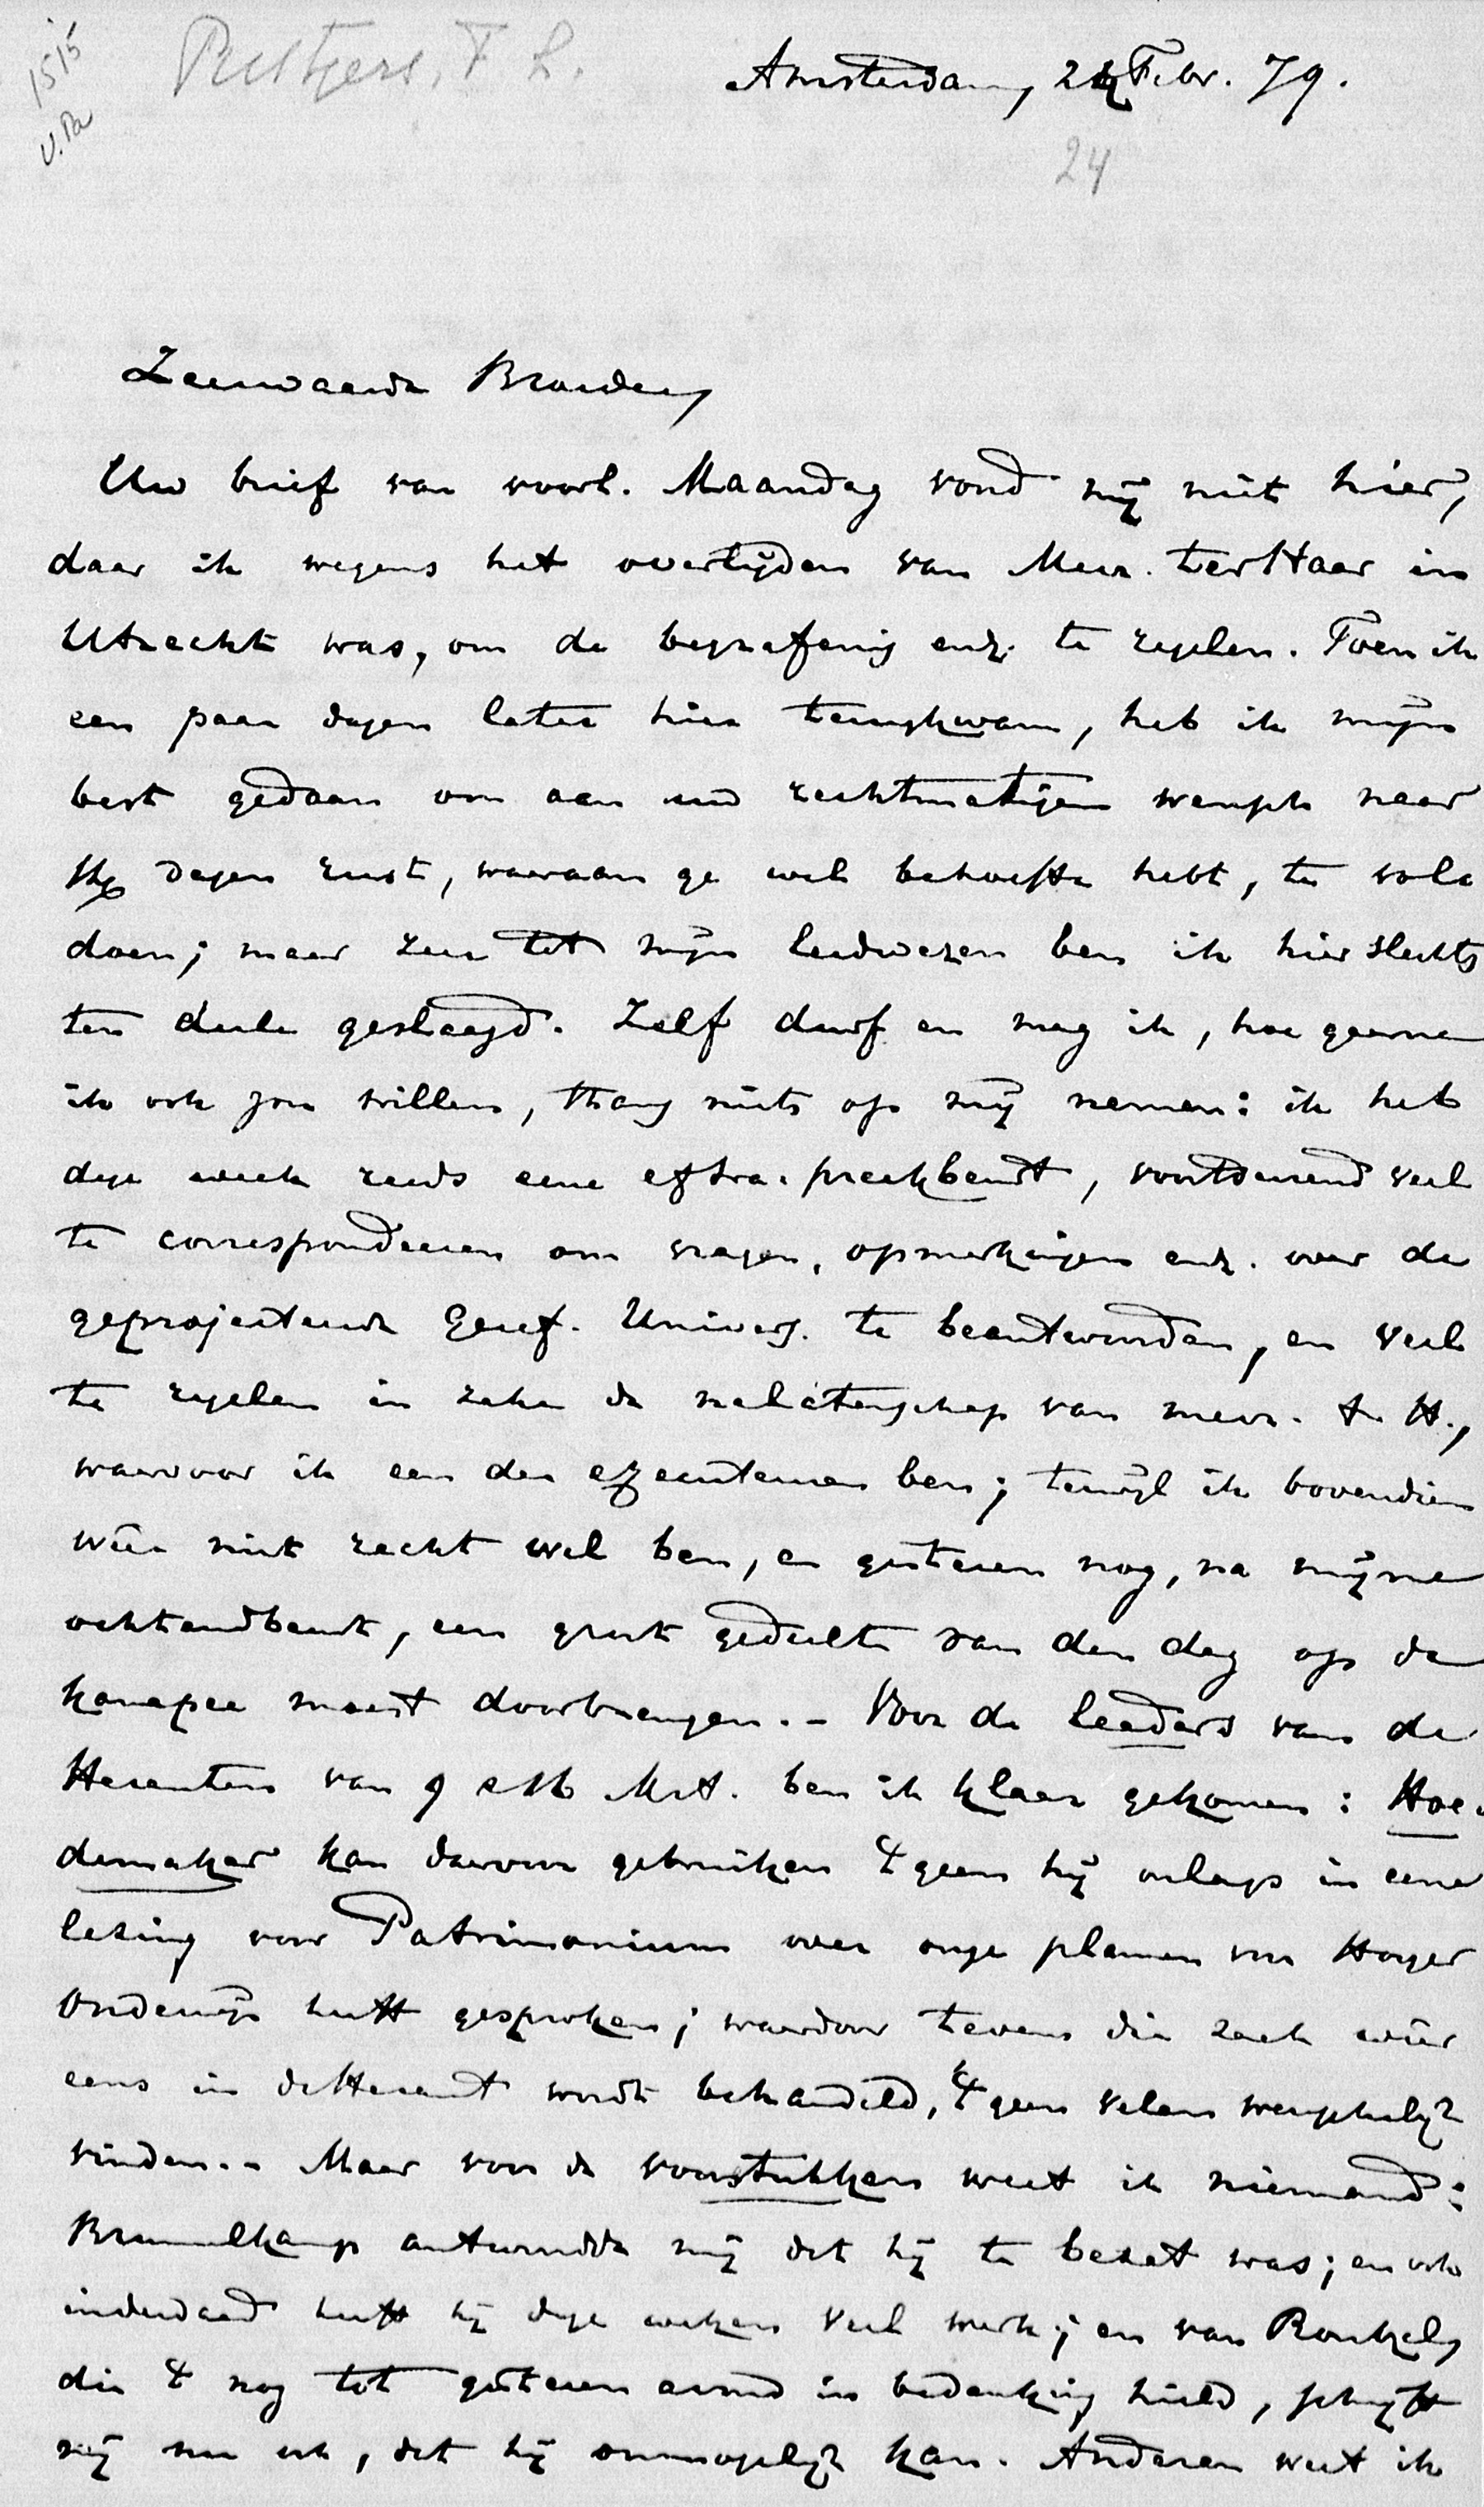 1515
Rutgers, F L.
Amsterdam, 24 Febr. 79.
24
Zeerwaarde Broeder,
Uw brief van voorl. Maandag vond mij niet hier,
daar ik wegens het overlijden van Mevr. ter Haar in
Utrecht was, om de begrafenis enz. te regelen. Toen ik
een paar dagen later hier terugkwam, heb ik mijn
best gedaan om aan uw rechtmatigen wensch naar
dagen rust, waaraan ge wel behoefte hebt, te vol-
doen; maar zeer tot mijn leedwezen ben ik hier slechts
ten deele geslaagd. Zelf durf en mag ik, hoe gaarne
ik ook zou willen, thans niets op mij nemen: ik heb
deze week reeds eene extra-preekbeurt, voortdurend veel
te correspondeeren om vragen, opmerkingen enz. over de
geprojecteerde Geref. Univers. te beantwoorden, en veel
te regelen in zake de nalatenschap van mevr. t. H.,
waarvoor ik een der executeuren ben; terwijl ik bovendien
wêer niet recht wel ben, en gisteren nog, na mijne
ochtendbeurt, een groot gedeelte van den dag op de
kanapee moest doorbrengen. – Voor de leaders van de
Herauten van 9 en 16 Mrt. ben ik klaar gekomen: Hoe-
demaker kan daarvoor gebruiken 't geen hij onlangs in eene
lezing voor Patrimonium over onze plannen van Hooger
Onderwijs heeft gesproken; waardoor tevens die zaak wêer
eens in de Heraut wordt behandeld, 't geen velen wenschelijk
vinden. – Maar voor de voorstukken weet ik niemand:
Brummelkamp antwoordde mij dat hij te bezet was; en ook
inderdaad heeft hij deze weken veel werk; en van Ronkel,
die 't nog tot gisteren avond in bedenking hield, schrijft
mij nu ook, dat hij onmogelijk kan. Anderen weet ik